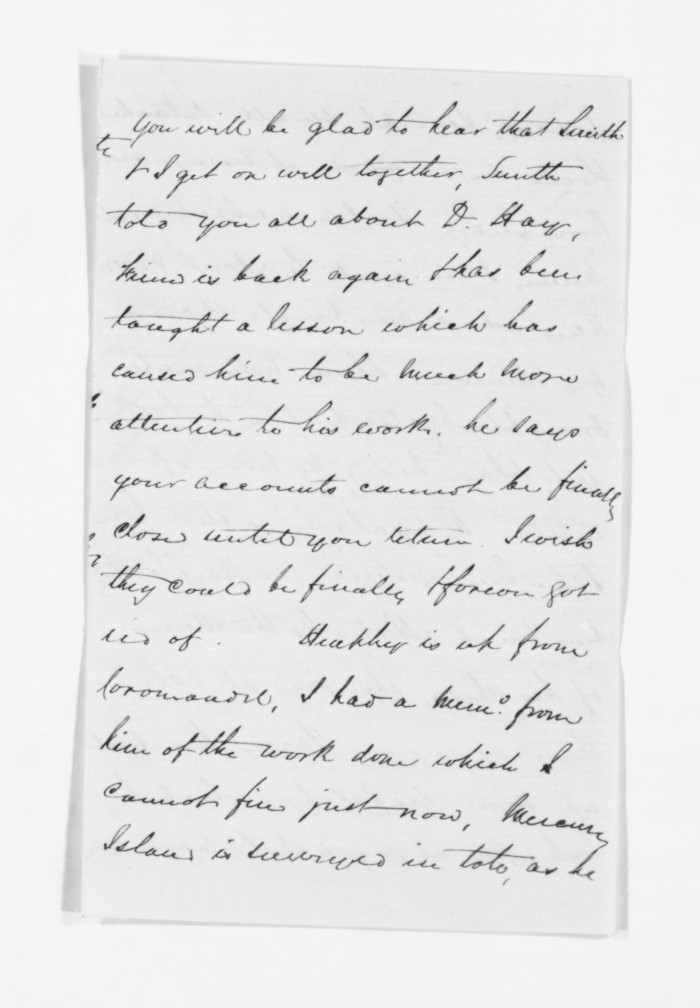 you will be glad to hear that Smith
& I get on well together, Smith
told you all about D. Hay,
is back again & has been
taught a lesson which has
caused him to be much more
attentive to his work. he says
your accounts cannot be finally
close until you return. I wish
they could be finally & forever got
rid of. Heaphy is up from
Coromandel, I had a Memo. from
him of the work done which I
cannot find just now, Mercury
Island is surveyed in toto, as he